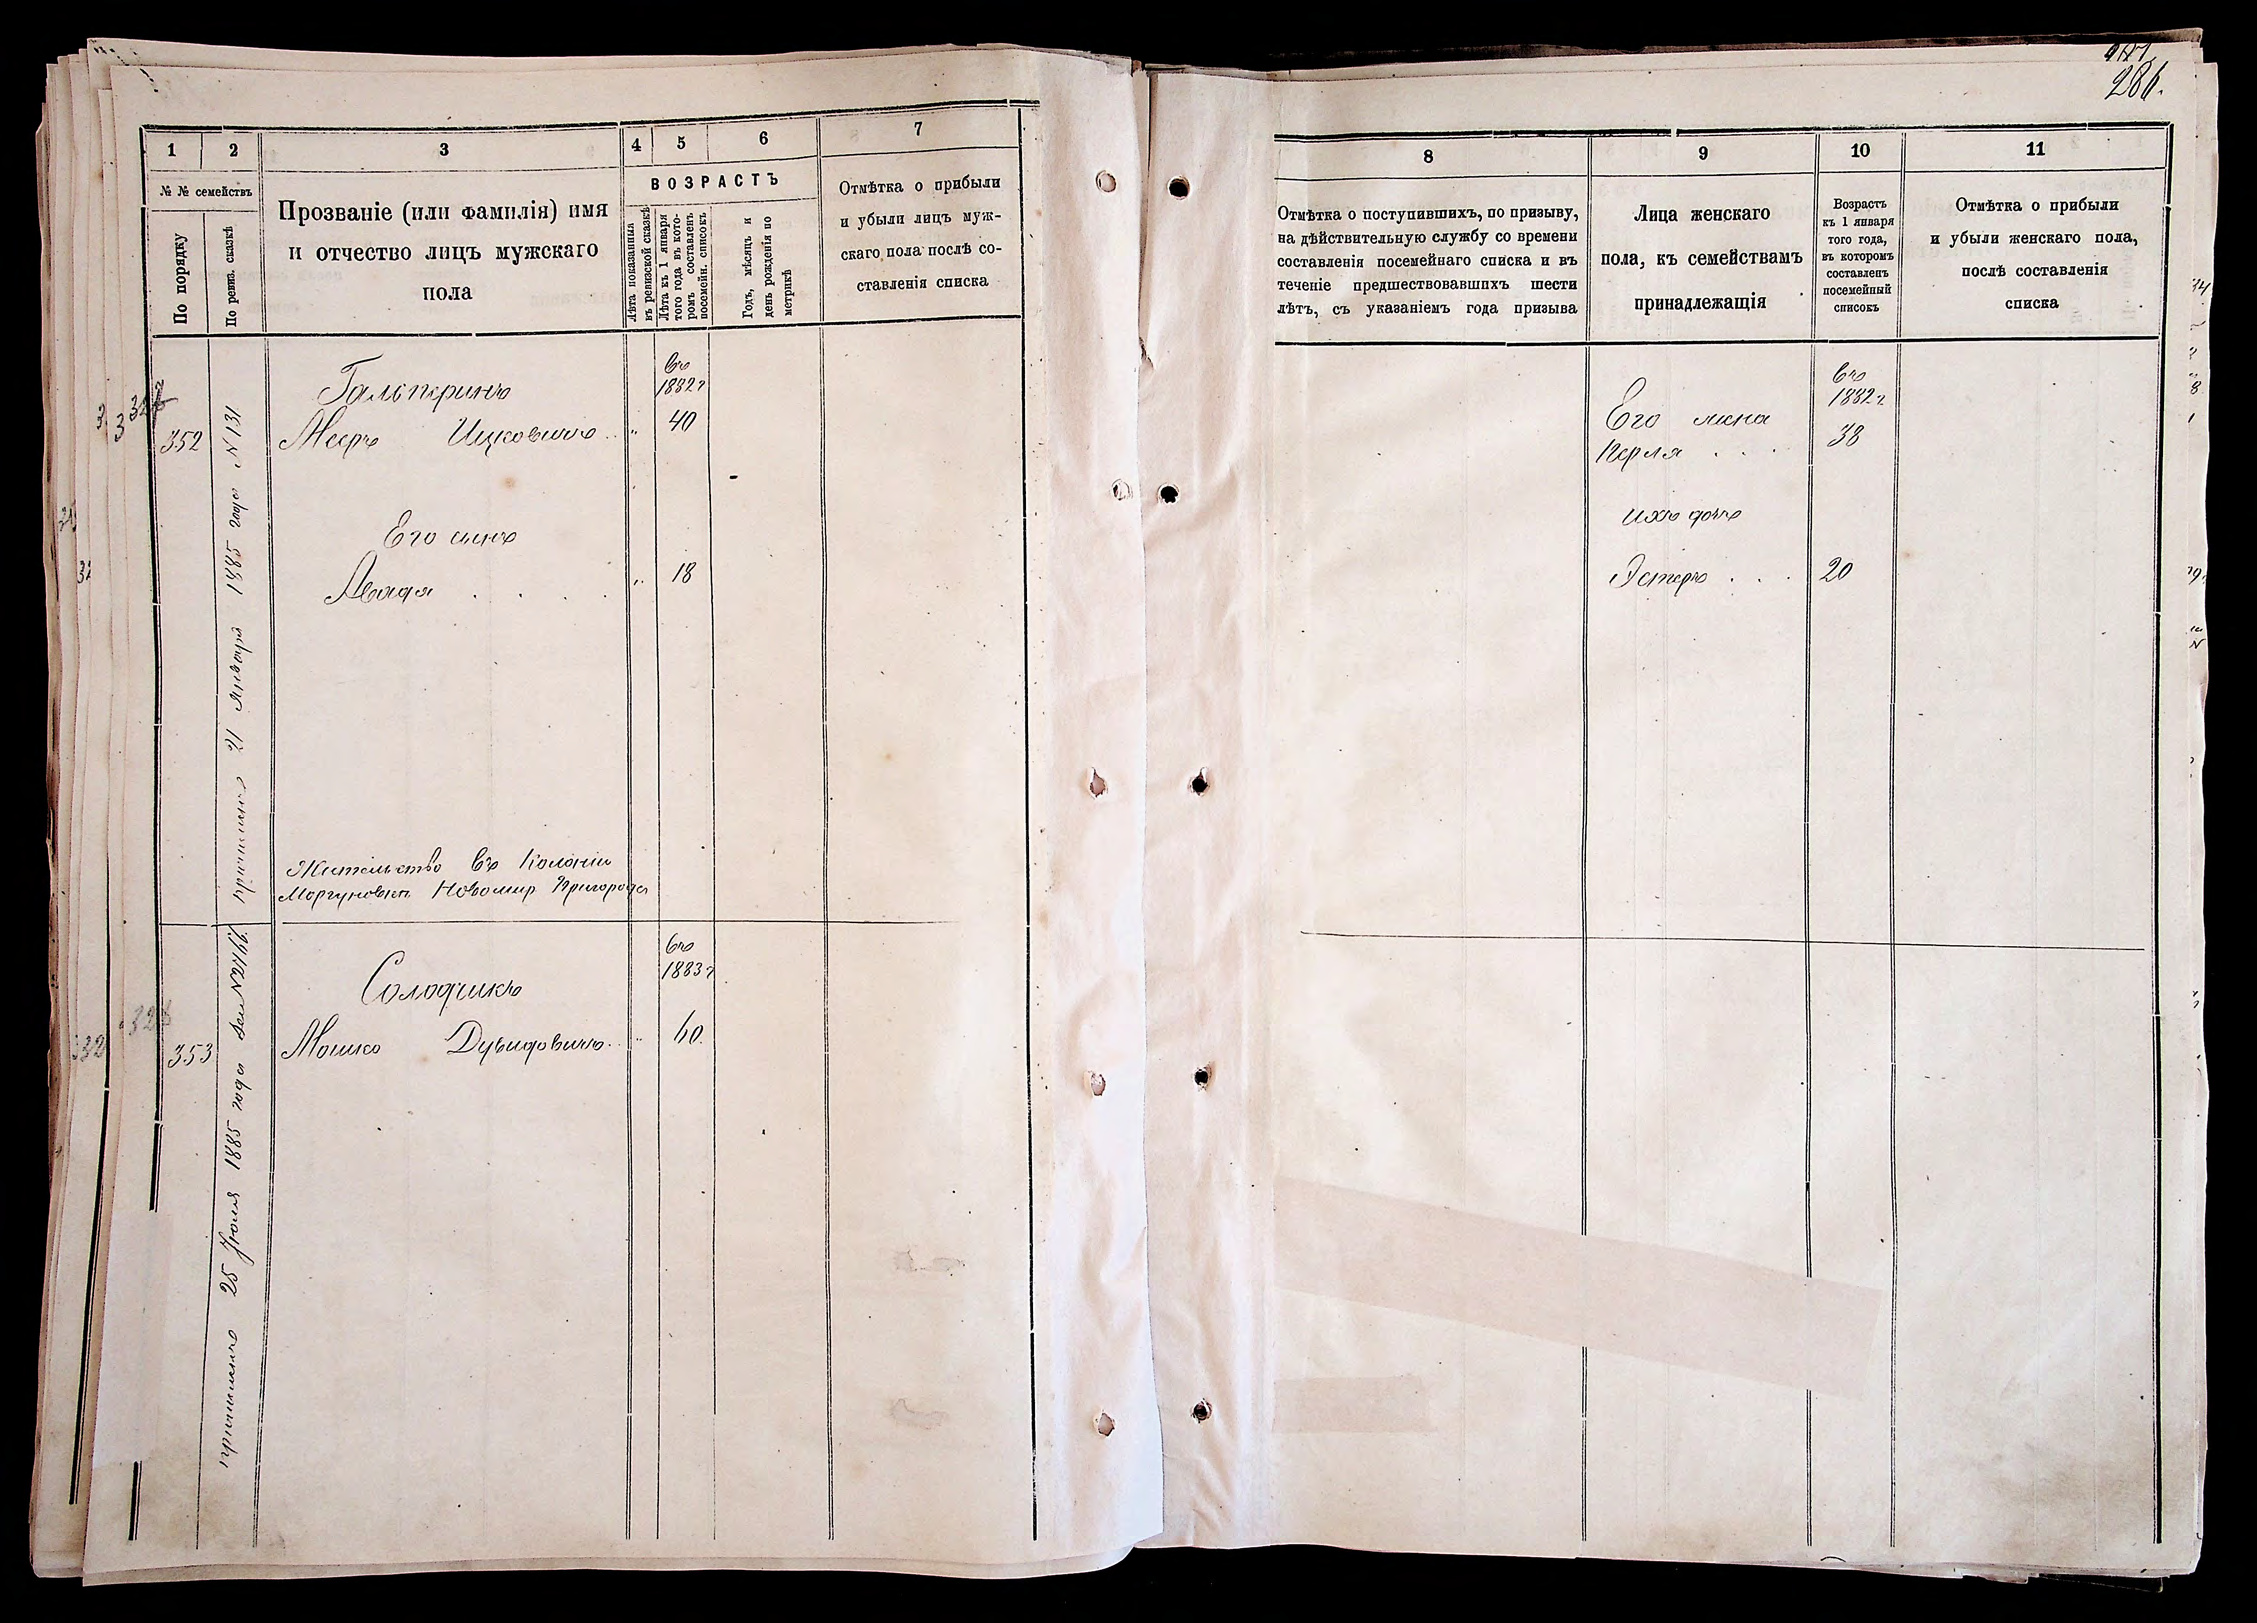 286.
1
2
3
4
5
6
7
№ № семействъ
По порядку
По ревиз. сказкѣ
Прозваніе (или фамилія) имя
и отчество лицъ мужскаго
пола
ВОЗРАСТЪ
Лѣта показанныя
въ ревизской сказкѣ
Лѣта къ 1 января
того года въ кото-
ромъ составленъ
посемейн. списокъ
Годъ, мѣсяцъ и
день рожденія по
метрикѣ
Отмѣтка о прибыли
и убыли лицъ муж-
скаго пола послѣ со-
ставленія списка
352
Причисленъ 21 Января 1885 года N 131
Гальперинъ
Въ
1882 г
Мееръ Ицковичъ .. „ 40
Его сынъ
Авадя . . . . „ 18
Жительство въ Колоніи
Моргуновкѣ Новомир Пригорода
353
причисленъ 25 Іюля 1885 года
Солодчикъ
Въ
1883 г
Мошко Дувидовичъ .. „ 60.
8
9
10
11
Отмѣтка о поступившихъ, по призыву,
на дѣйствительную службу со времени
составленія посемейнаго списка и въ
теченіе предшествовавшихъ шести
лѣтъ, съ указаніемъ года призыва
Лица женскаго
пола, къ семействамъ
принадлежащія
Возрастъ
къ 1 января
того года,
въ которомъ
составленъ
посемейный
списокъ
Отмѣтка о прибыли
и убыли женскаго пола,
послѣ составленія
списка
Въ
1882 г.
Его жена
Перля . . . 38
ихъ дочь
Эстеръ . . . 20